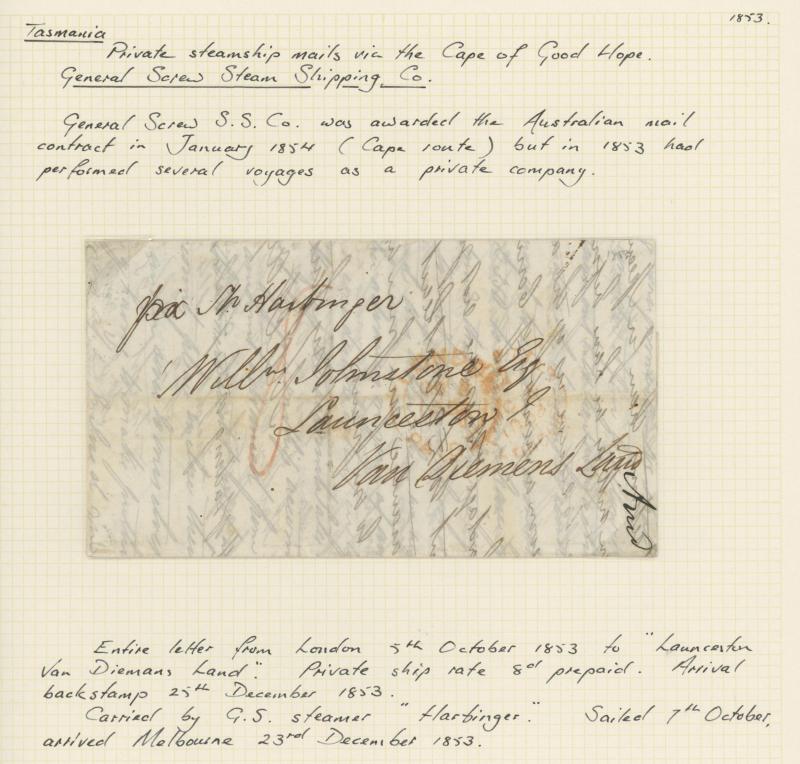 1853.
Tasmania
Private steamship mails via the Cape of Good Hope.
General Screw Steam Shipping Co.
General Screw S.S. Co. was awarded the Australian mail
contract in January 1854 (Cape route) but in 1853 had
performed several voyages as a private company.
Harbinger
Willm Johnstone Esq
Launceston
Van Diemens Land
Entire letter from London 5th October 1853 to "Launceston
Van Diemans Land". Private ship rate 8d prepaid. Arrival
backstamp 25th December 1853.
Carried by G.S. steamer "Harbinger." Sailed 7th October,
arrived Melbourne 23rd December 1853.